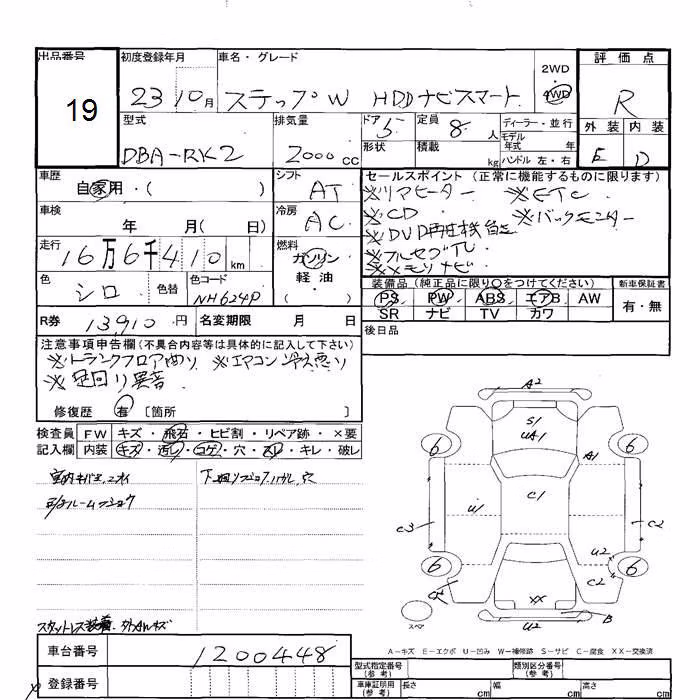 出品番号
19
初度登録年月
23 10月
車名・グレード
ステップW HDDナビスマート
2WD
4WD
評価点
R
外装 内装
E D
型式
DBA-RK2
排気量
2000cc
ドア 5
形状
定員 8人
積載 kg
ディーラー・並行
モデル年式 年
ハンドル 左・右
車歴
自家用・( )
シフト
AT
車検
年 月( 日)
冷房
AC
走行
16万6千410km
燃料
ガソリン
軽油
( )
色
シロ
色替
色コード
NH624P
R券 13,910円 名変期限 月 日
セールスポイント(正常に機能するものに限ります)
※リアヒーター ※ETC
※CD ※バックモニター
※DVD再生機能
※フルセグTV
※メモリナビ
装備品(純正品に限り○をつけてください)
PS PW ABS エアB AW
SR ナビ TV カワ
新車保証書
有・無
後日品
注意事項申告欄(不具合内容等は具体的に記入して下さい)
※トランクフロア曲り ※エアコン冷え悪り
※足回り異音
修復歴 有 〔箇所 〕
検査員
記入欄
FW キズ・飛石・ヒビ割・リペア跡・×要
内装 キズ・汚レ・コゲ・穴・スレ・キレ・破レ
下廻り
スタットレス装着
車台番号
1200448
登録番号
A2
S1
UA1
A1
6
6
C1
C3
U1
C2
U2
C2
6
6
XX
B
U2
スペア
A-キズ E-エクボ U-凹み W-補修跡 S-サビ C-腐食 XX-交換済
型式指定番号
(参考)
類別区分番号
(参考)
車庫証明用
(参考)
長さ cm
幅 cm
高さ cm